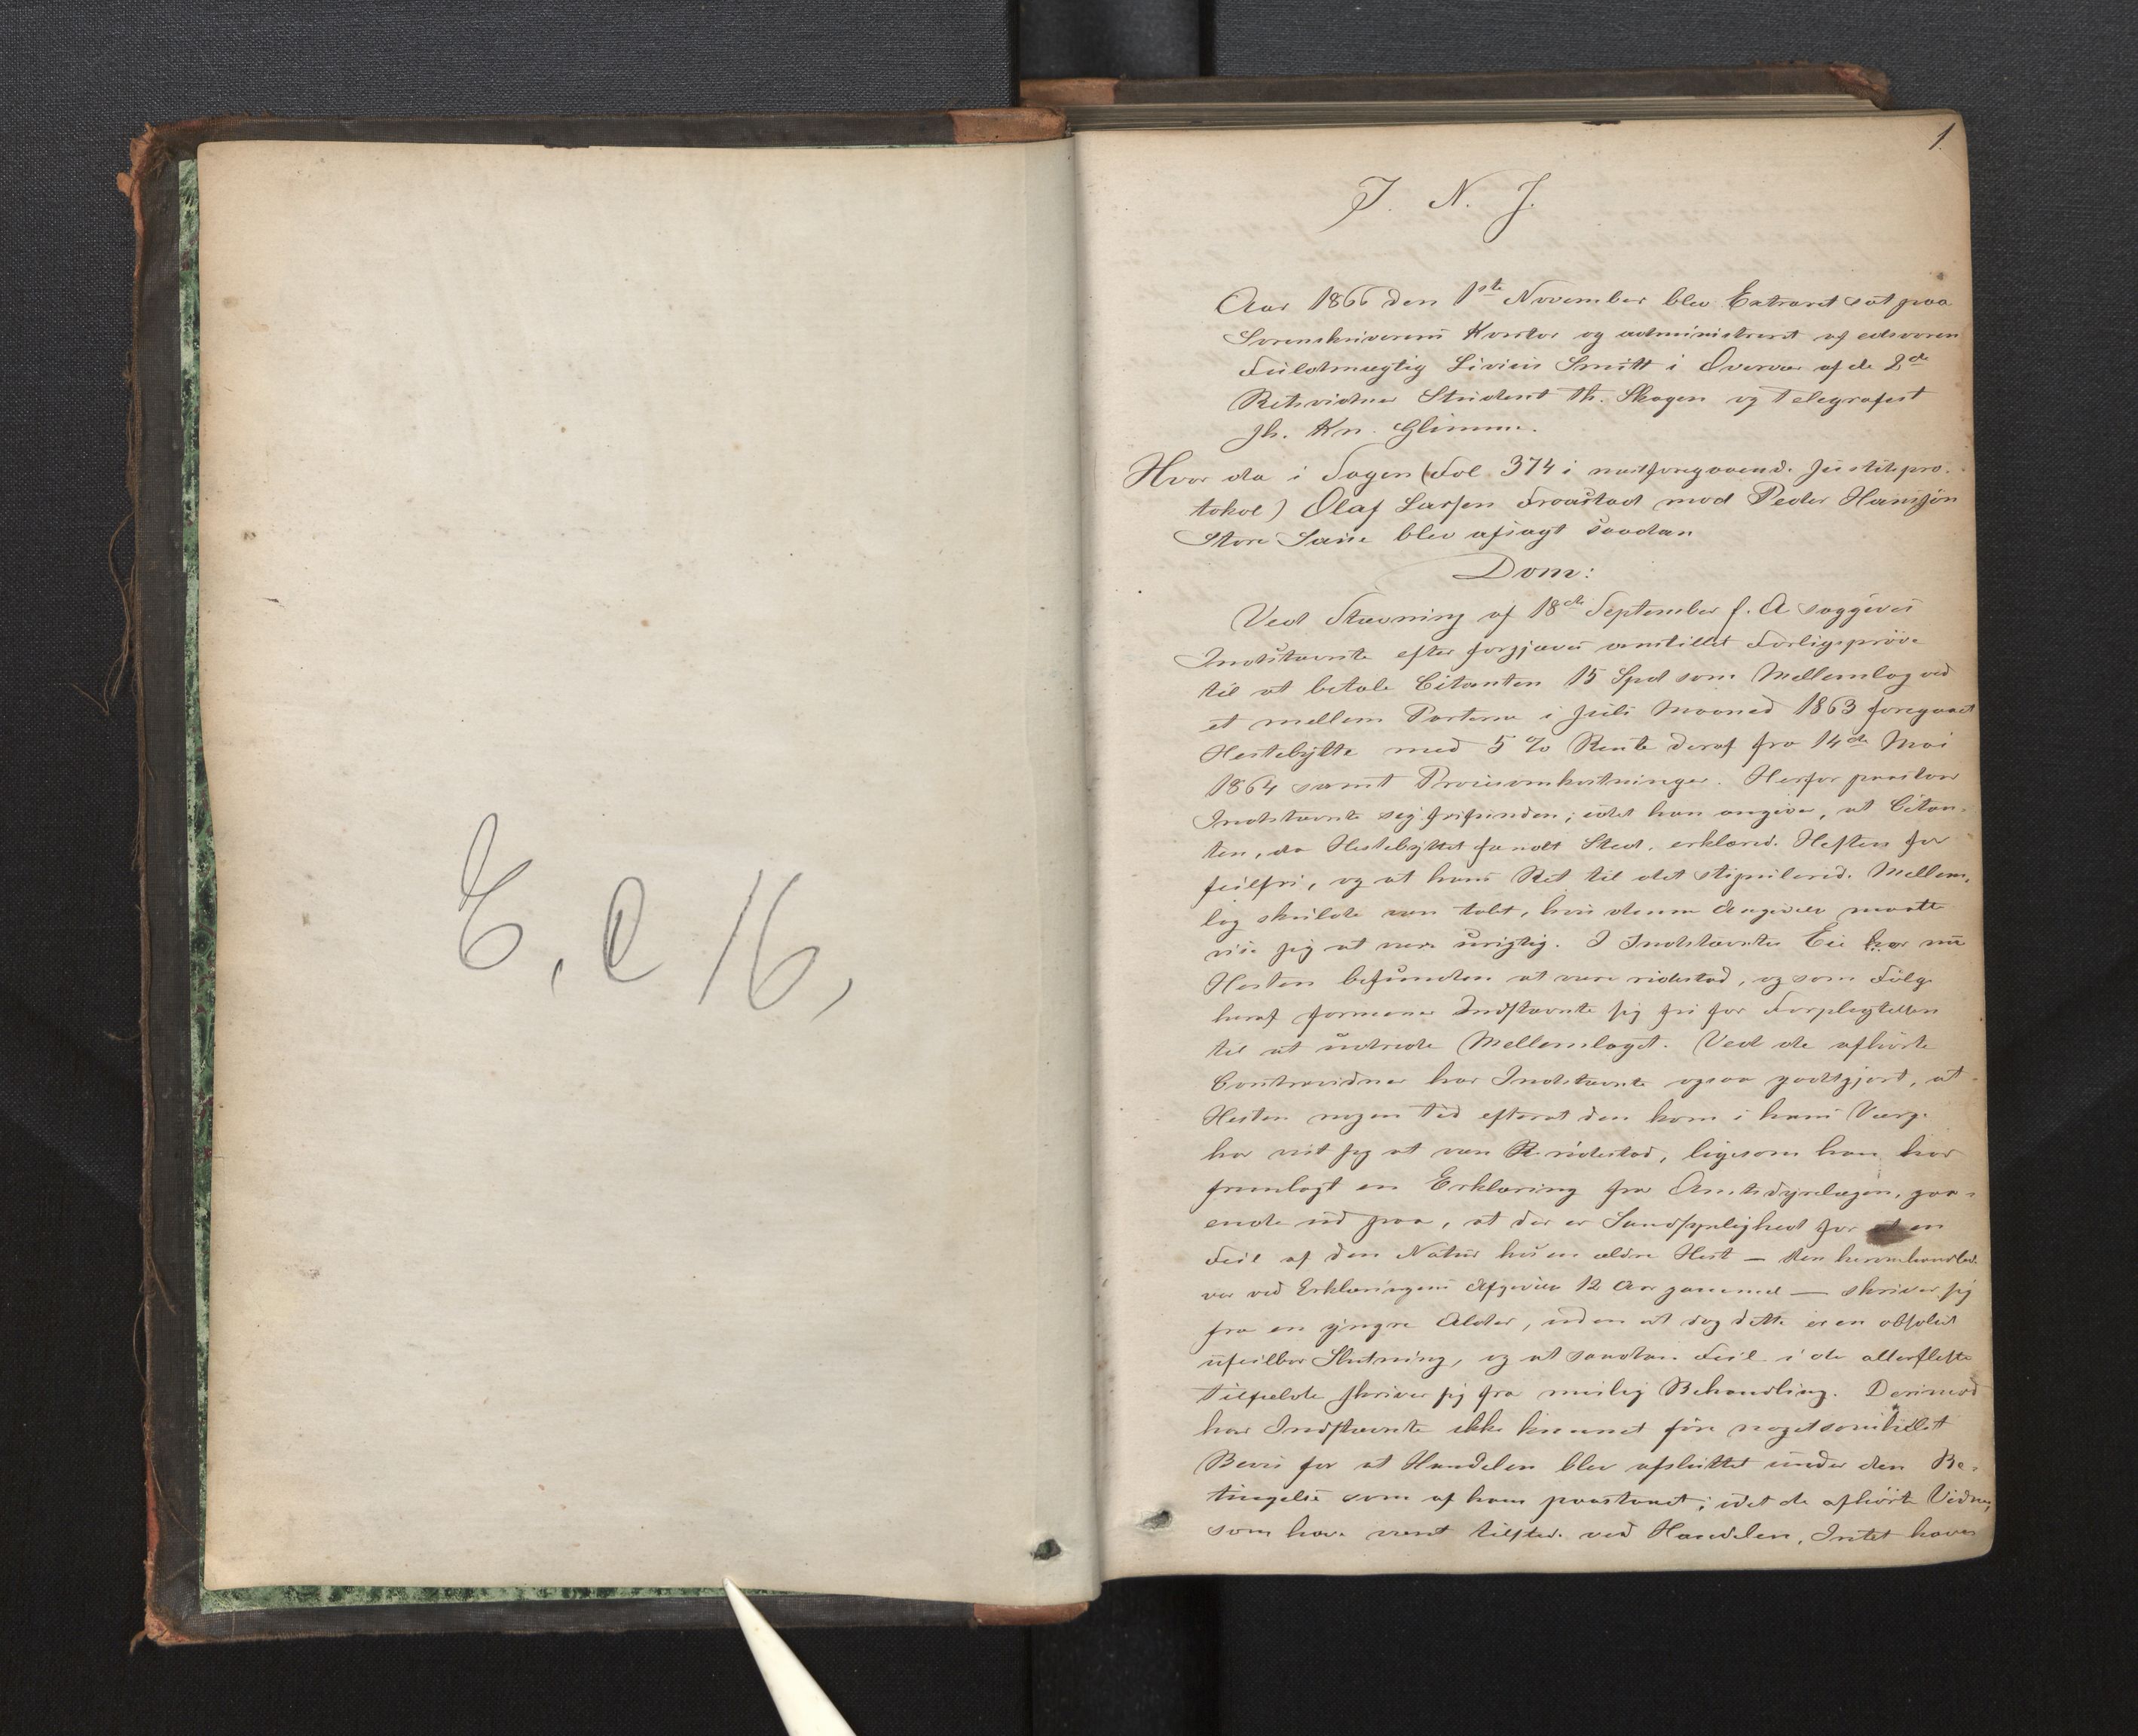 E, e 16,
1.
J. N. J.
Aar 1866 den 1ste November blev Extraret sat paa
Sorenskriverens Kontor og administreret af edsvoren
Fuldmægtig Livius Smitt i Overvær af de 2de
Retsvidner Student Th. Skogen og Telegrafist
Jh. Kn. Glimme.
Hvor da i Sagen (Fol 374 i næstforegaaende Justitspro-
tokol) Olaf Larsen Fraastad mod Peder Hansen
Store blev afsagt saadan
Dom:
Ved Stævning af 18de September f. A saggives
Indstævnte efter forgjæves anstillet Forligsprøve
til at betale Citanten 15 Spd som Mellemlag ved
et mellem Parterne i Juli Maaned 1863 foregaaet
Hestebytte med 5 % Rente deraf fra 14de Mai
1864 samt Procesomkostninger. Herfor paastaar
Indstævnte sig frifunden; idet han angiver, at Citan-
ten, da Hestebyttet fandt Sted, erklærede Hesten for
feilfri, og at hans Ret til det stipulerede Mellem-
lag skulde være tabt, hvis denne Angivelse maatte
vise sig at være urigtig. I Indstævntes Eie har nu
Hesten befunden at være ridestad, og som Følge
heraf formener Indstævnte sig fri for Forpligtelsen
til at udrede Mellemlaget. Ved de afhørte
Contravidner har Indstævnte ogsaa godtgjort, at
Hesten nogen Tid efterat den kom i hans Værge
har vist sig at være ridestad, ligesom han har
fremlagt en Erklæring fra Amtsdyrlægen, gaa-
ende ud paa, at der er Sandsynlighed for at en
Feil af den Natur hos en ældre Hest — den heromhandlede
var ved Erklæringens Afgivelse 12 Aar gammel — skriver sig
fra en yngre Alder, uden at dog dette er en absolut
ufeilbar Slutning, og at saadan Feil i de allerfleste
Tilfælde skriver sig fra uvislig Behandling. Derimod
har Indstævnte ikke kunnet føre nogetsomhelst
Bevis for at Handelen blev afsluttet under den Be-
tingelse som af ham paastaaet; idet de afhørte Vidner,
som have været tilstede ved Handelen, Intet have